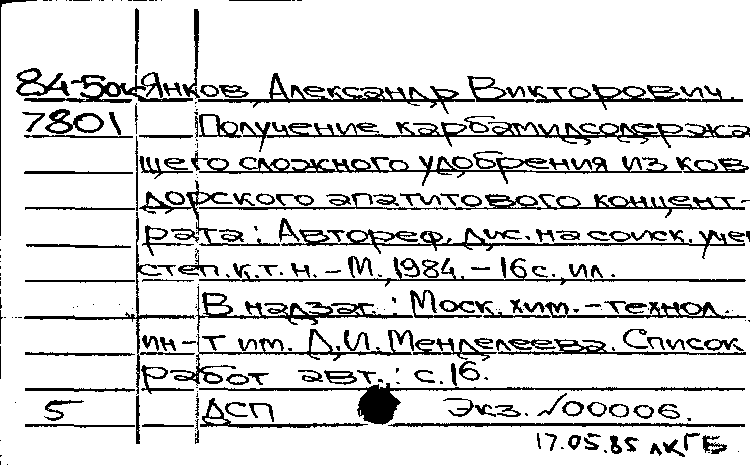 84-5оч Янков, Александр Викторович.
7801 Получение карбамидсодержа
щего сложного удобрения из ков
дорского апатитового концент-
рата: Автореф. дис. на соиск. учен
степ. к.т.н. - М., 1984. - 16 с., ил.
В надзаг.: Моск. хим.-технол.
ин-т им. Д.И. Менделеева. Список
работ авт.: с. 16.
5 ДСП Экз. №00006.
17.05.85 ЛКГБ